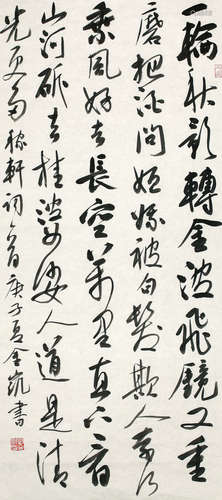 一輪秋影轉金波飛鏡又重
磨把酒問姮娥被白髮欺人奈何
乘風好去長空萬里直下看
山河斫去桂婆娑人道是清
光更多稼軒詞一首庚子夏金凱書